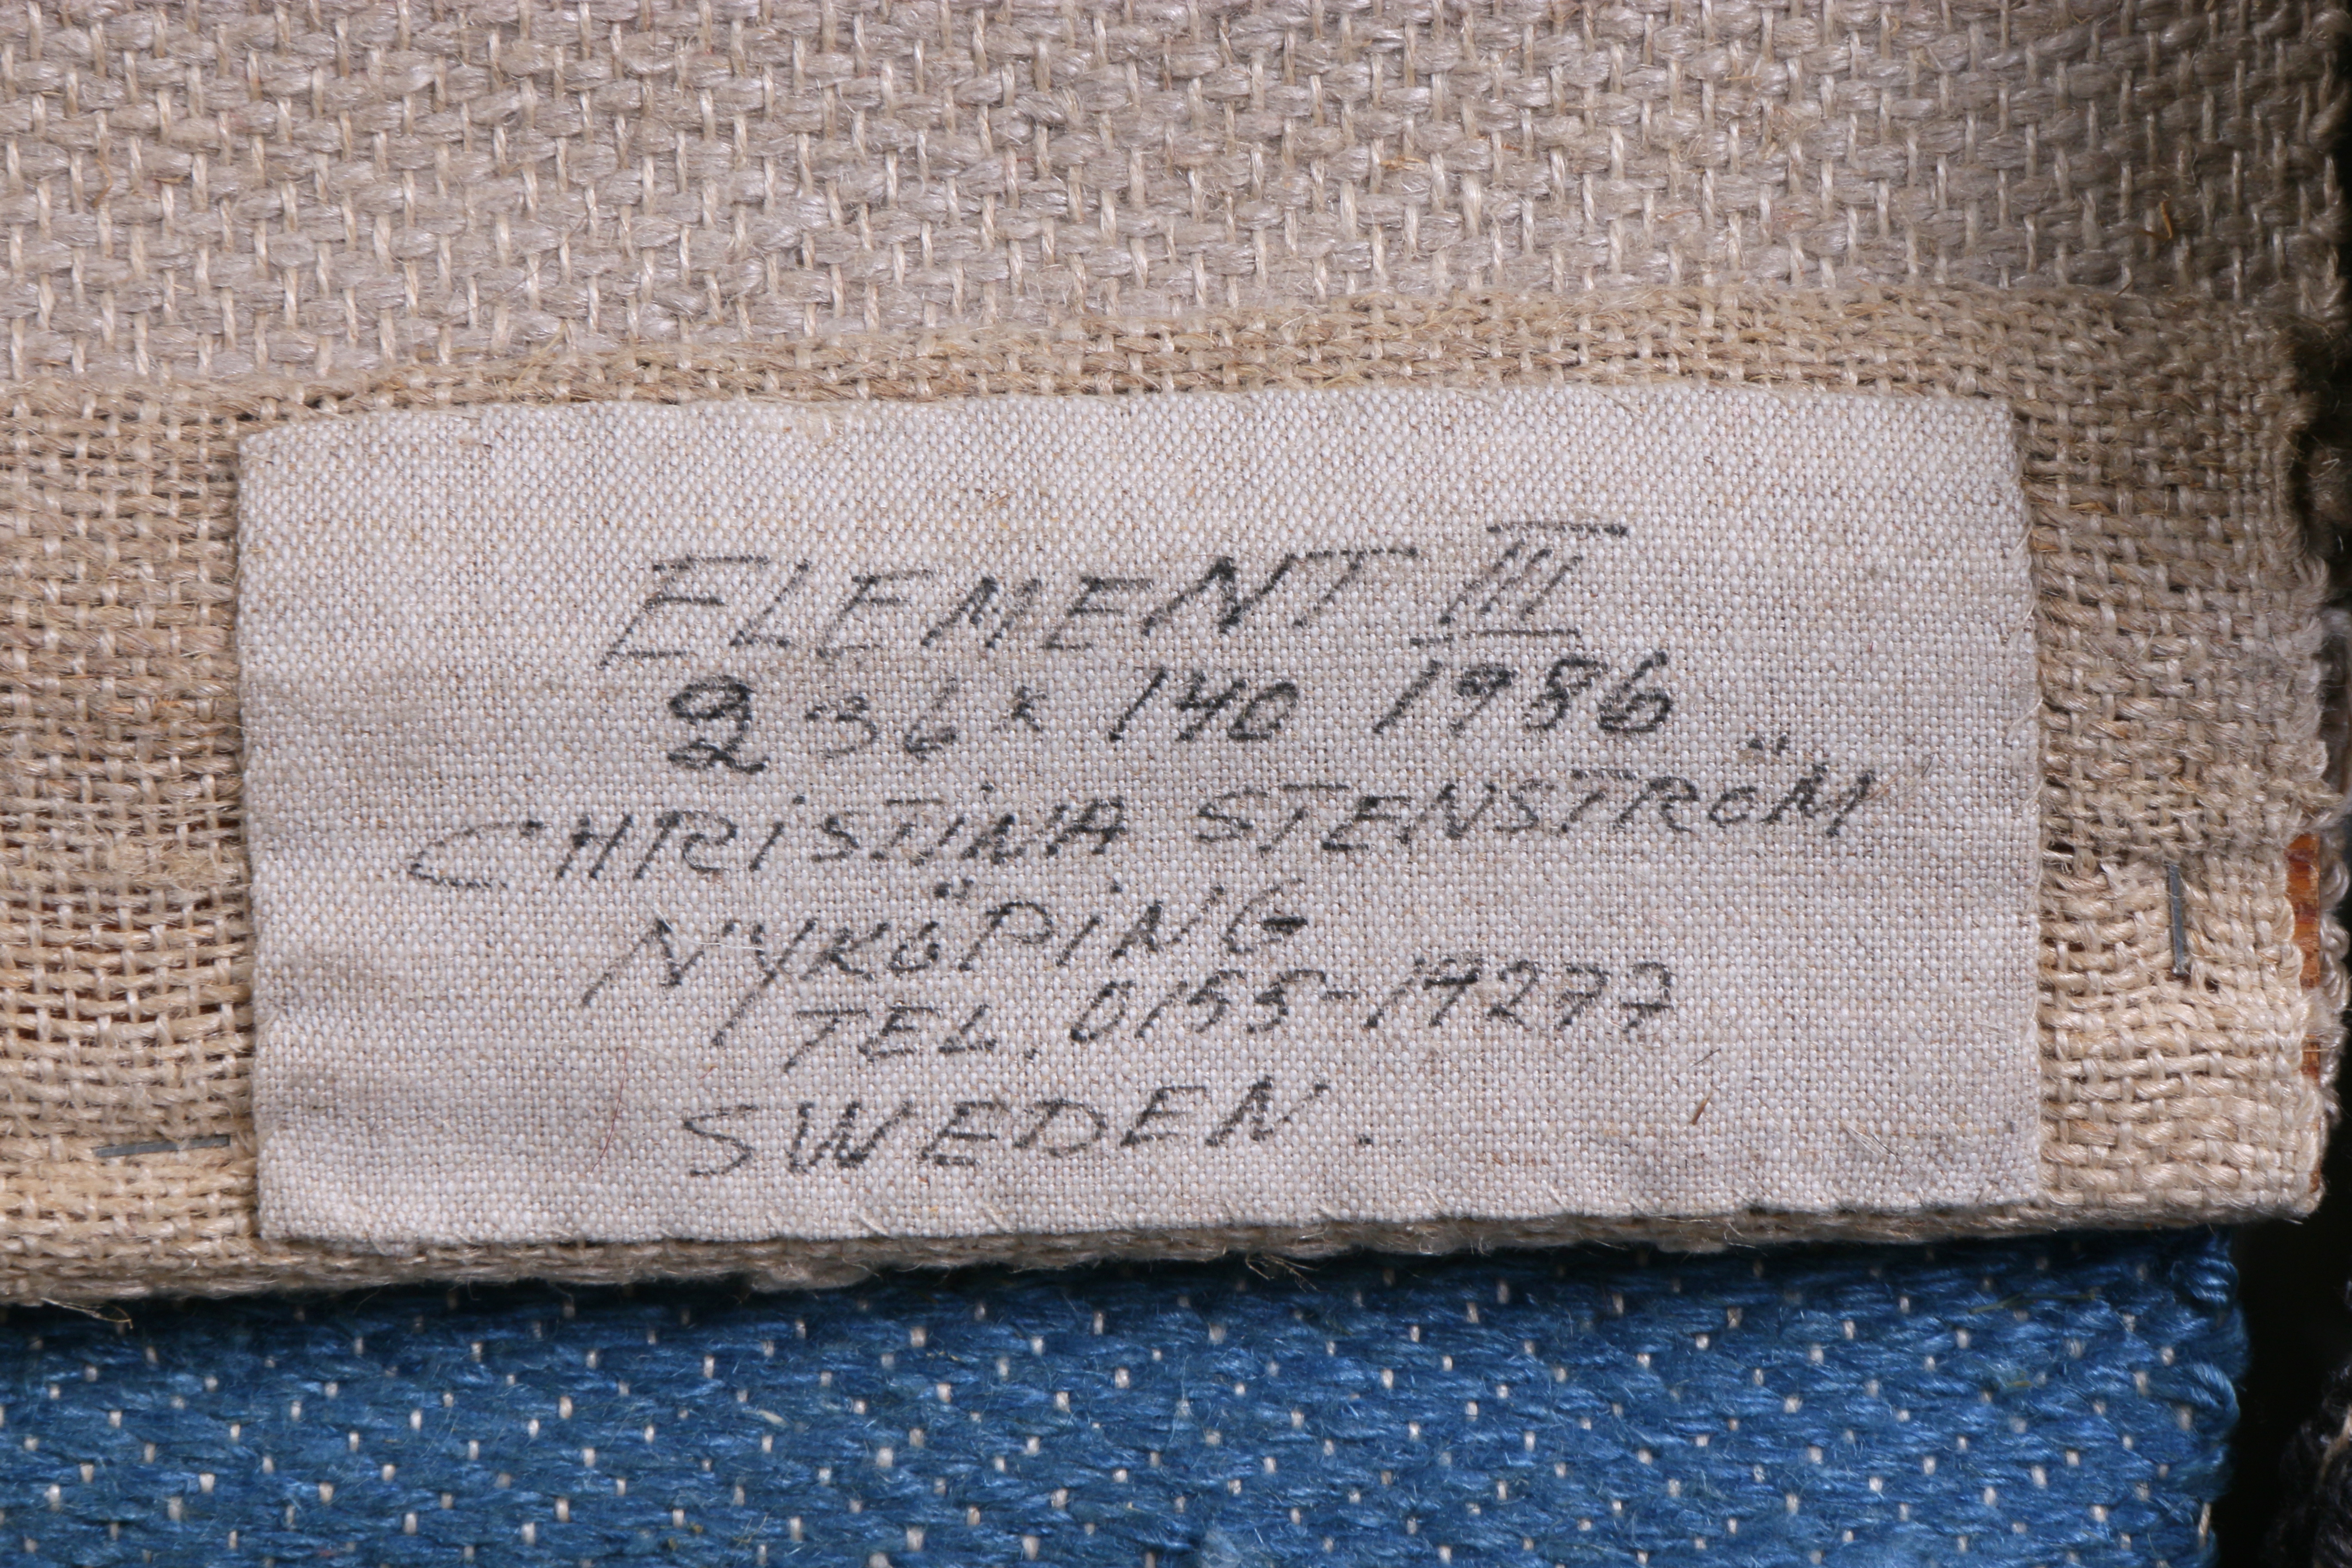 ELEMENT III
236 x 140 1986
CHRISTINA STENSTRÖM
NYKÖPING
TEL. 0155-19277
SWEDEN.